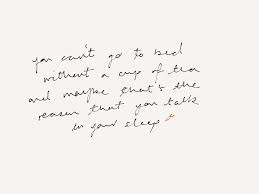 you can't go to bed
without a cup of tea
and maybe that's the
reason that you talk
in your sleep